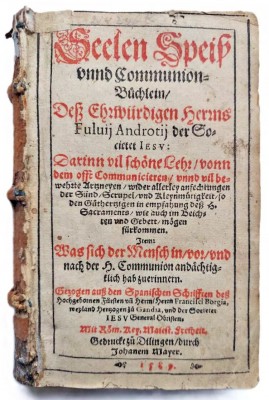 Seelen Speiß
vnnd Communion-
Büchlein/
Deß Ehrwürdigen Herrns
Fuluij Androtij der So-
cietet IESV:
Darinn vil schöne Lehr/ vonn
dem offt Communicieren/ vnnd vil be-
wehrte Artzneyen/ wider allerley anfechtungen
der Sünd/ Scrupel/ vnd Kleynmütigkeit/ so
den Gůthertzigen in empfahung deß H.
Sacraments/ wie auch im Beich-
ten vnd Gebett/ mögen
fürkommen.
Item:
Was sich der Mensch in/ vor/ vnd
nach der H. Communion andächtig-
lich hab zuerinnern.
Gezogen auß den Spanischen Schrifften deß
Hochgebornen Fürsten vñ Herrn/ Herrn Francisci Borgia,
weyland Hertzogen zu Gandia, vnd der Societet
IESV General Obristen.
Mit Röm. Key. Maiest. Freiheit.
Gedruckt zu Dilingen/ durch
Johannem Mayer.